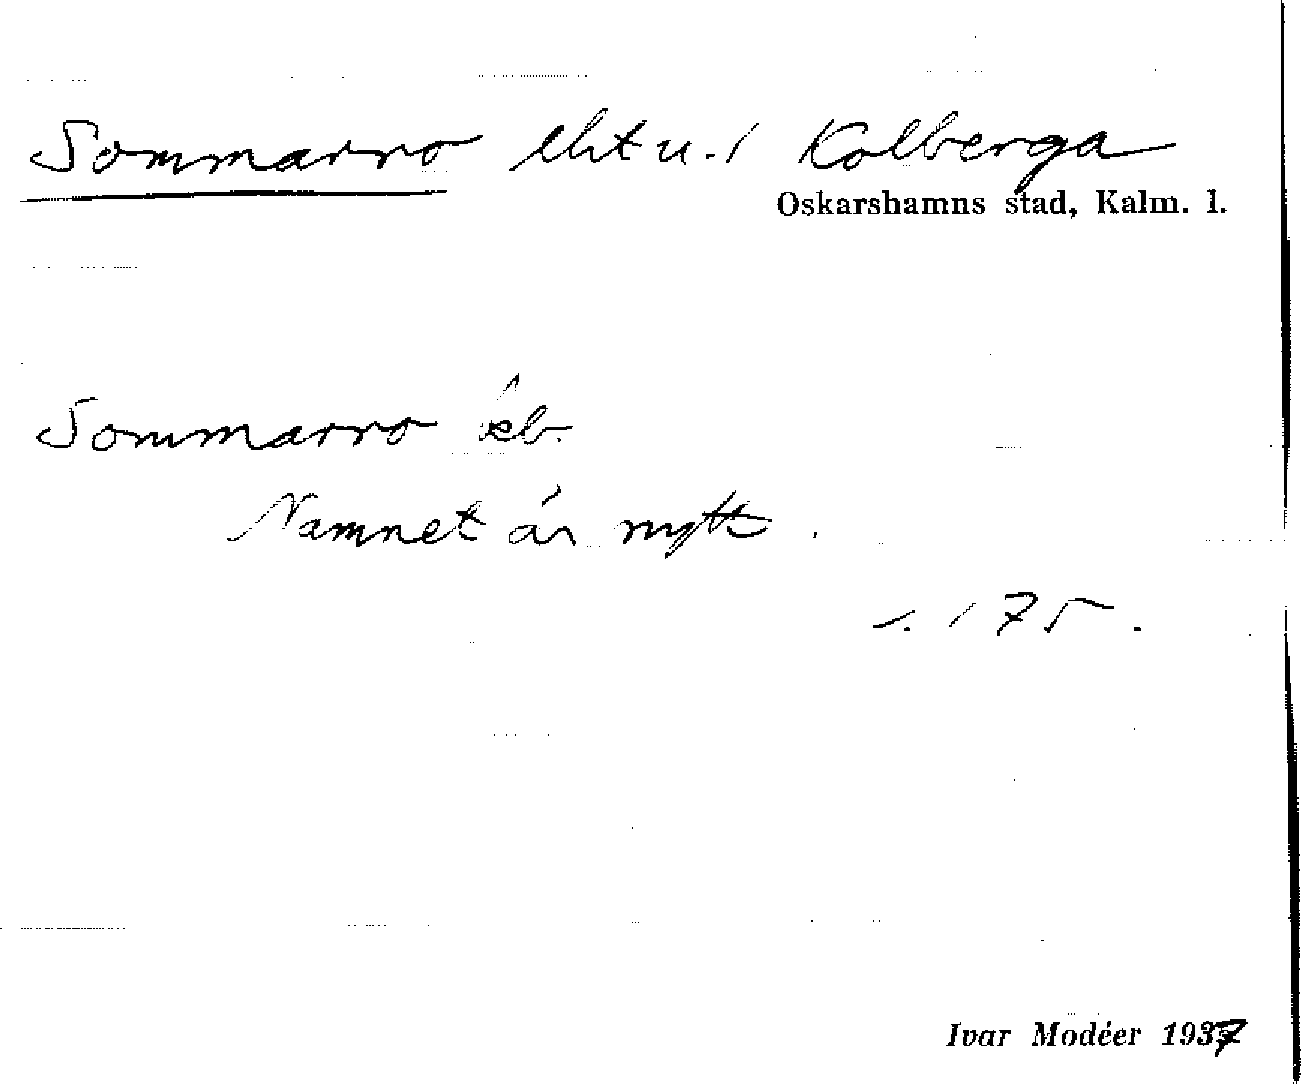 Sommarro lht u. / Kolberga
Oskarshamns stad, Kalm. l.
Sommarro ekb.
Namnet är nytt.
s. 175.
Ivar Modéer 1937